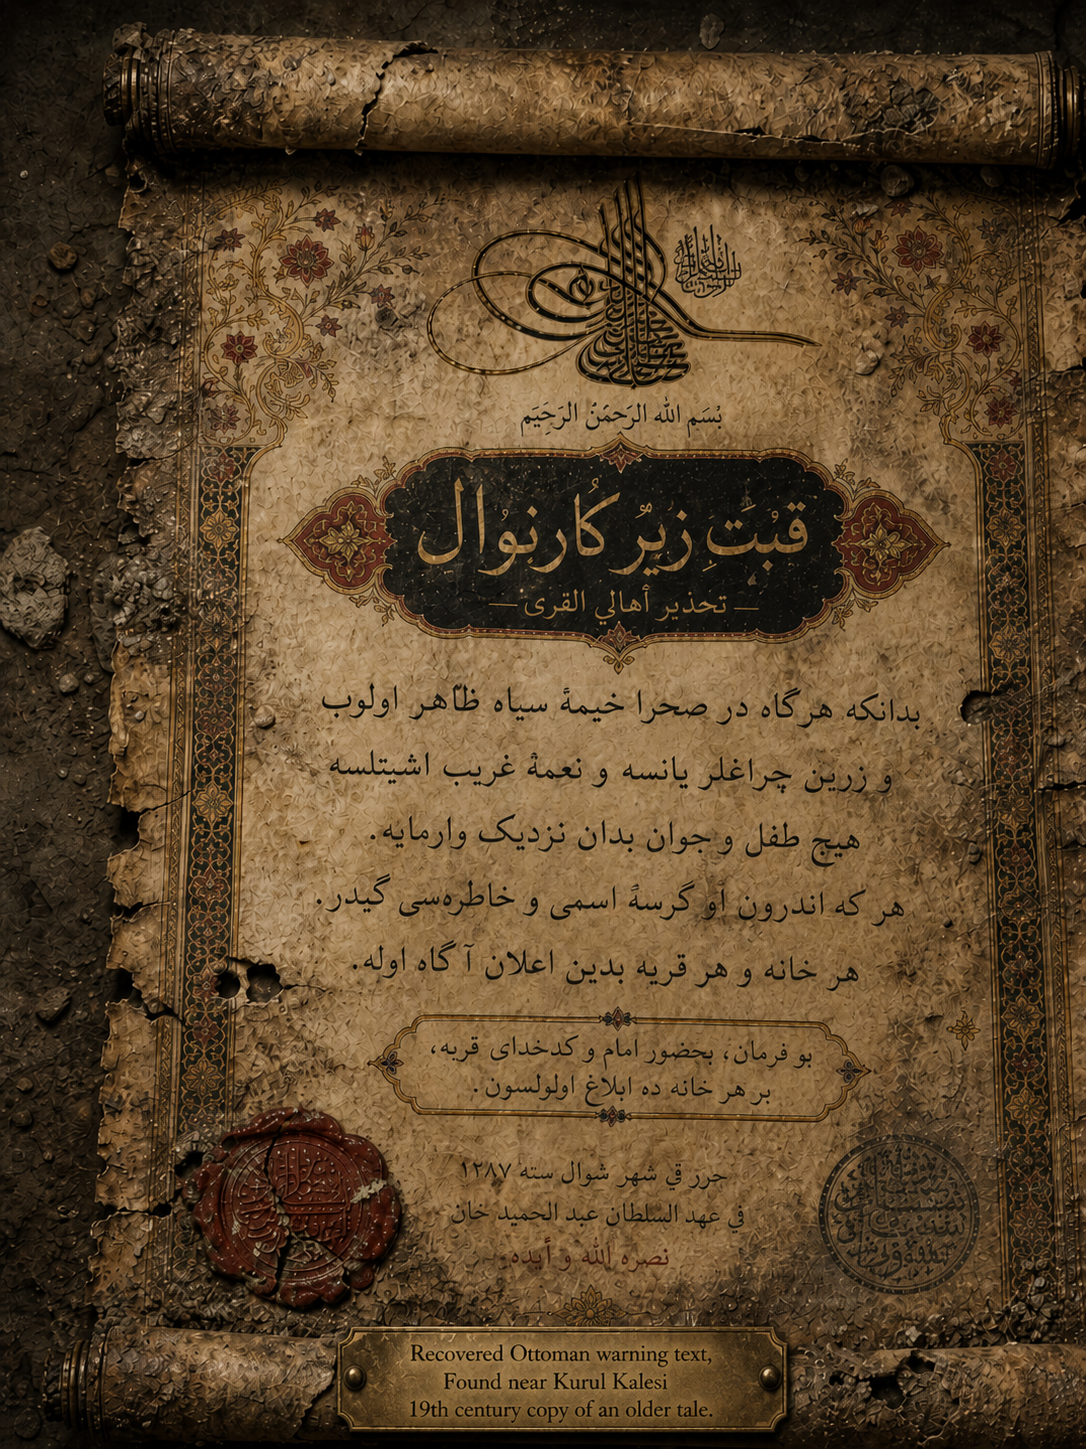 بْسَمِ الله الرَحمٰنْ الرَحِيَمِ
قبْتَ زِيْر كُارنوْال
تحذير أهالي القرى
بدانكه هرگاه در صحرا خیمۀ سیاه ظاهر اولوب
و زرین چراغلر یانسه و نعمۀ غریب اشیتلسه
هیچ طفل و جوان بدان نزدیک وارمایه.
هر که اندرون او گرسۀ اسمی و خاطره‌سی گیدر.
هر خانه و هر قریه بدین اعلان آگاه اوله.
بو فرمان، بحضور امام و کدخدای قربه،
بر هر خانه ده ابلاغ اولولسون.
حرر في شهر شوال سته ١٢٨٧
في عهد السلطان عبد الحميد خان
نصره الله و أيده.
Recovered Ottoman warning text,
Found near Kurul Kalesi
19th century copy of an older tale.